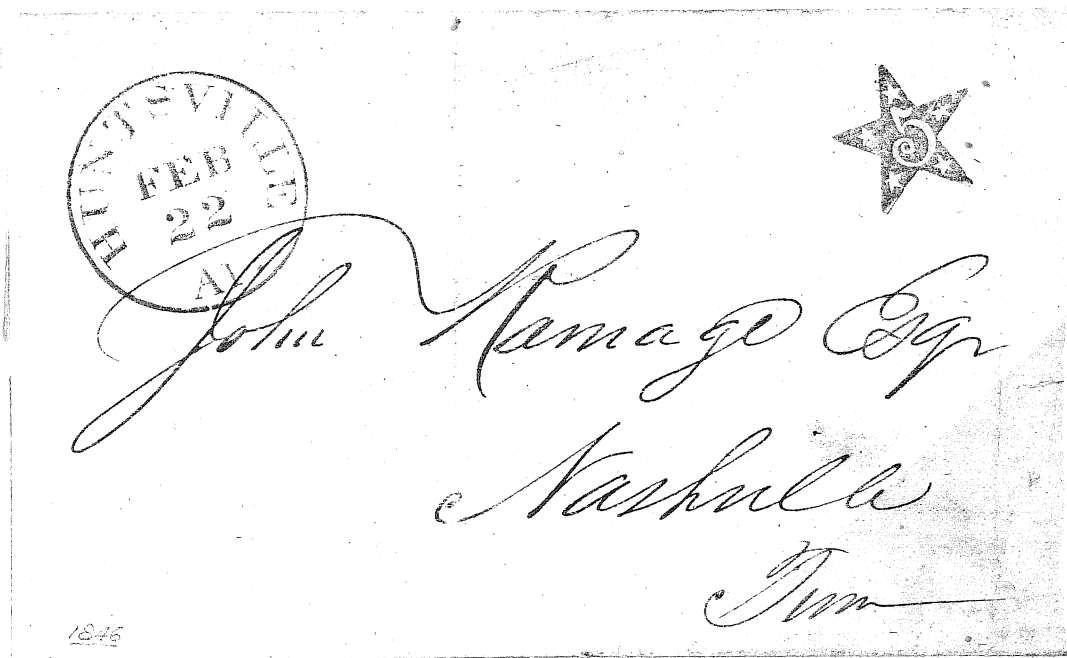 HUNTSVILLE
FEB
22
Al
5
John Ramage Esqr
Nashville
Tenn
1846